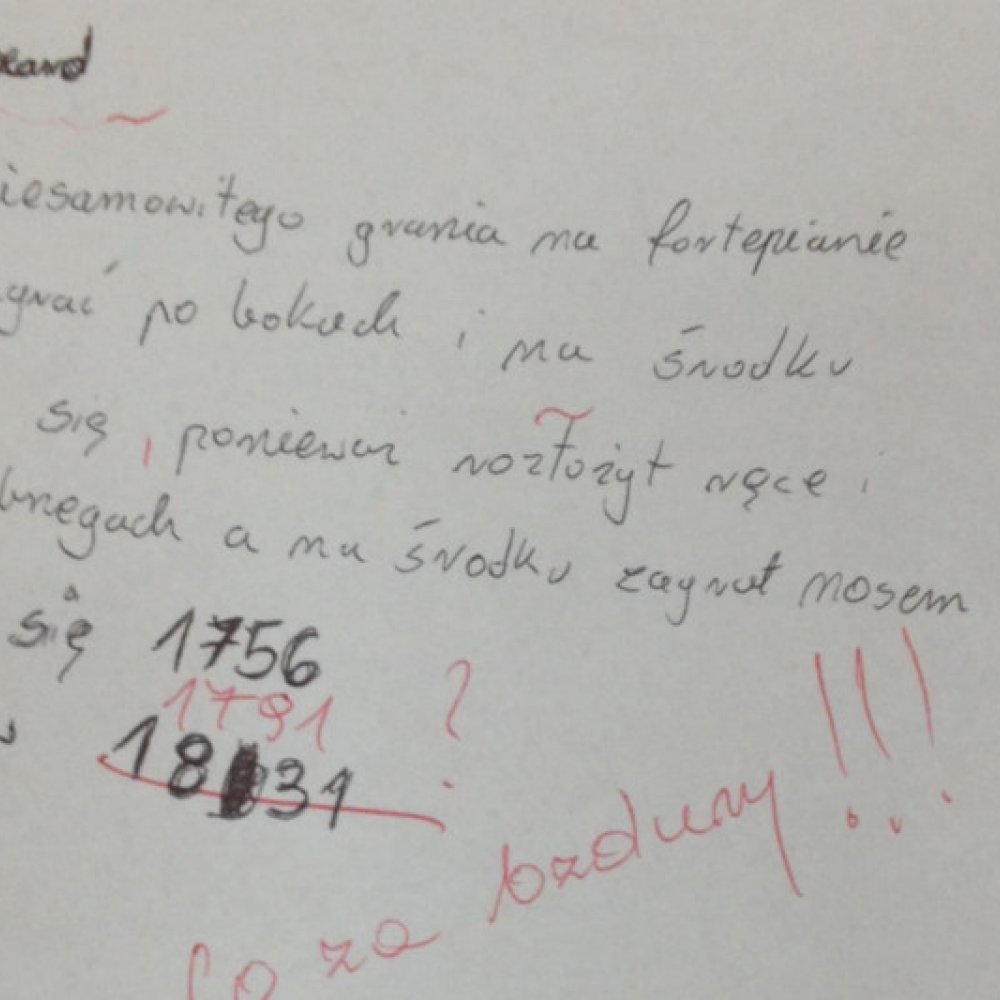 iesamowitego grania na fortepianie
grać po bokach i na środku
się, ponieważ rozłożył ręce i
brzegach a na środku zagrał nosem
się 1756
1791 ?
1831
co za bzdury !!!